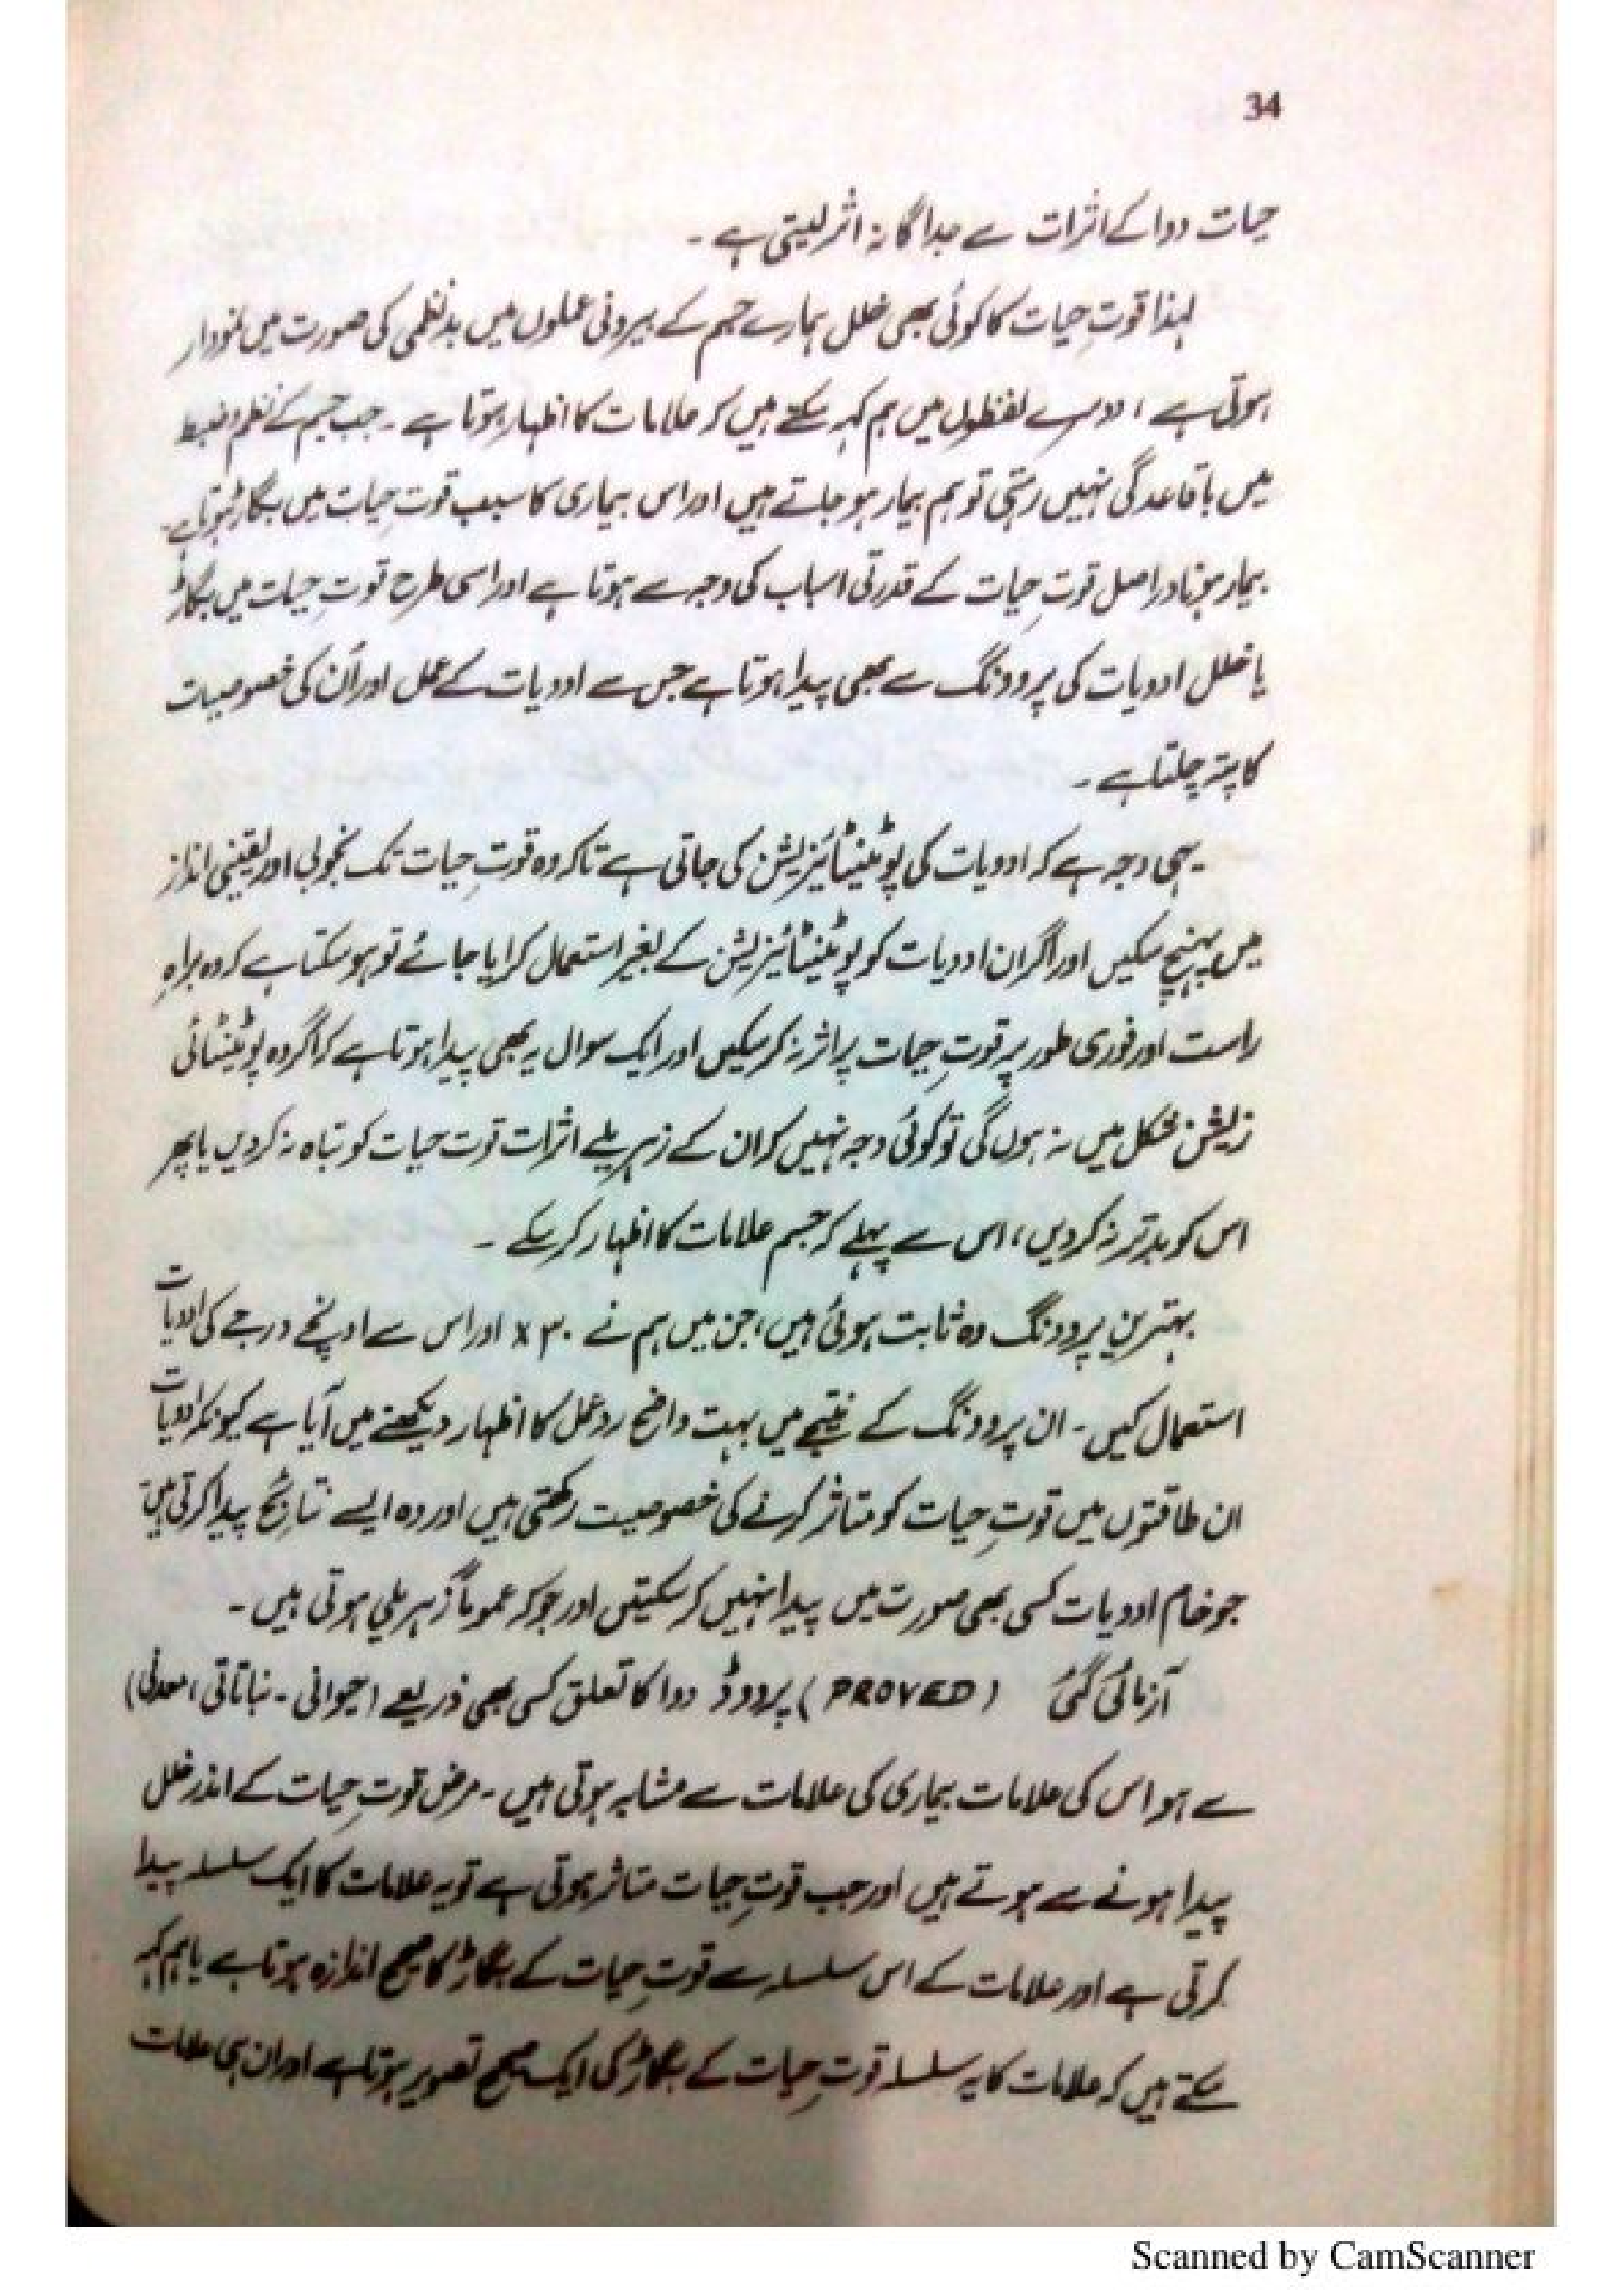 34
حیات دوا کے اثرات سے جداگانہ اثر لیتی ہے ۔
لہذا قوتِ حیات کا کوئی بھی خلل ہمارے جسم کے بیرونی عملوں میں بدنظمی کی صورت میں نمودار
ہوتی ہے ، دوسرے لفظوں میں ہم کہہ سکتے ہیں کہ علامات کا اظہار ہوتا ہے ۔ جب جسم کے نظم و ضبط
میں باقاعدگی نہیں رہتی تو ہم بیمار ہو جاتے ہیں اور اس بیماری کا سبب قوتِ حیات میں بگاڑ ہوتا ہے۔
بیمار ہونا دراصل قوتِ حیات کے قدرتی اسباب کی وجہ سے ہوتا ہے اور اسی طرح قوتِ حیات میں بگاڑ
یا خلل ادویات کی پروونگ سے بھی پیدا ہوتا ہے جس سے ادویات کے عمل اور اُن کی خصوصیات
کا پتہ چلتا ہے ۔
یہی وجہ ہے کہ ادویات کی پوٹینٹائیزیشن کی جاتی ہے تاکہ وہ قوتِ حیات تک بخوبی اور یقینی انداز
میں پہنچ سکیں اور اگر ان ادویات کو پوٹینٹائیزیشن کے بغیر استعمال کرایا جائے تو ہو سکتا ہے کہ وہ براہِ
راست اور فوری طور پر قوتِ حیات پر اثر نہ کر سکیں اور ایک سوال یہ بھی پیدا ہوتا ہے کہ اگر وہ پوٹینٹائی
زیشن شکل میں نہ ہوں گی تو کوئی وجہ نہیں کہ ان کے زہریلے اثرات قوت حیات کو تباہ نہ کر دیں یا پھر
اس کو بدتر نہ کر دیں ، اس سے پہلے کہ جسم علامات کا اظہار کر سکے ۔
بہترین پروونگ وہ ثابت ہوئی ہیں ، جن میں ہم نے ۳۰ x اور اس سے اونچے درجے کی ادویات
استعمال کیں ۔ ان پروونگ کے نتیجے میں بہت واضح ردِعمل کا اظہار دیکھنے میں آیا ہے کیونکہ ادویات
ان طاقتوں میں قوتِ حیات کو متاثر کرنے کی خصوصیت رکھتی ہیں اور وہ ایسے نتائج پیدا کرتی ہیں
جو خام ادویات کسی بھی صورت میں پیدا نہیں کر سکتیں اور جو کہ عموماً زہریلی ہوتی ہیں ۔
آزمائی گئی ( PROVED ) پروڈ دوا کا تعلق کسی بھی ذریعے (حیوانی ۔ نباتاتی ، معدنی)
سے ہو اس کی علامات بیماری کی علامات سے مشابہ ہوتی ہیں ۔ مرض قوتِ حیات کے اندر خلل
پیدا ہونے سے ہوتے ہیں اور جب قوتِ حیات متاثر ہوتی ہے تو یہ علامات کا ایک سلسلہ پیدا
کرتی ہے اور علامات کے اس سلسلہ سے قوتِ حیات کے بگاڑ کا صحیح اندازہ ہوتا ہے یا ہم کہہ
سکتے ہیں کہ علامات کا یہ سلسلہ قوتِ حیات کے بگاڑ کی ایک صحیح تصویر ہوتا ہے اور ان ہی علامات
Scanned by CamScanner